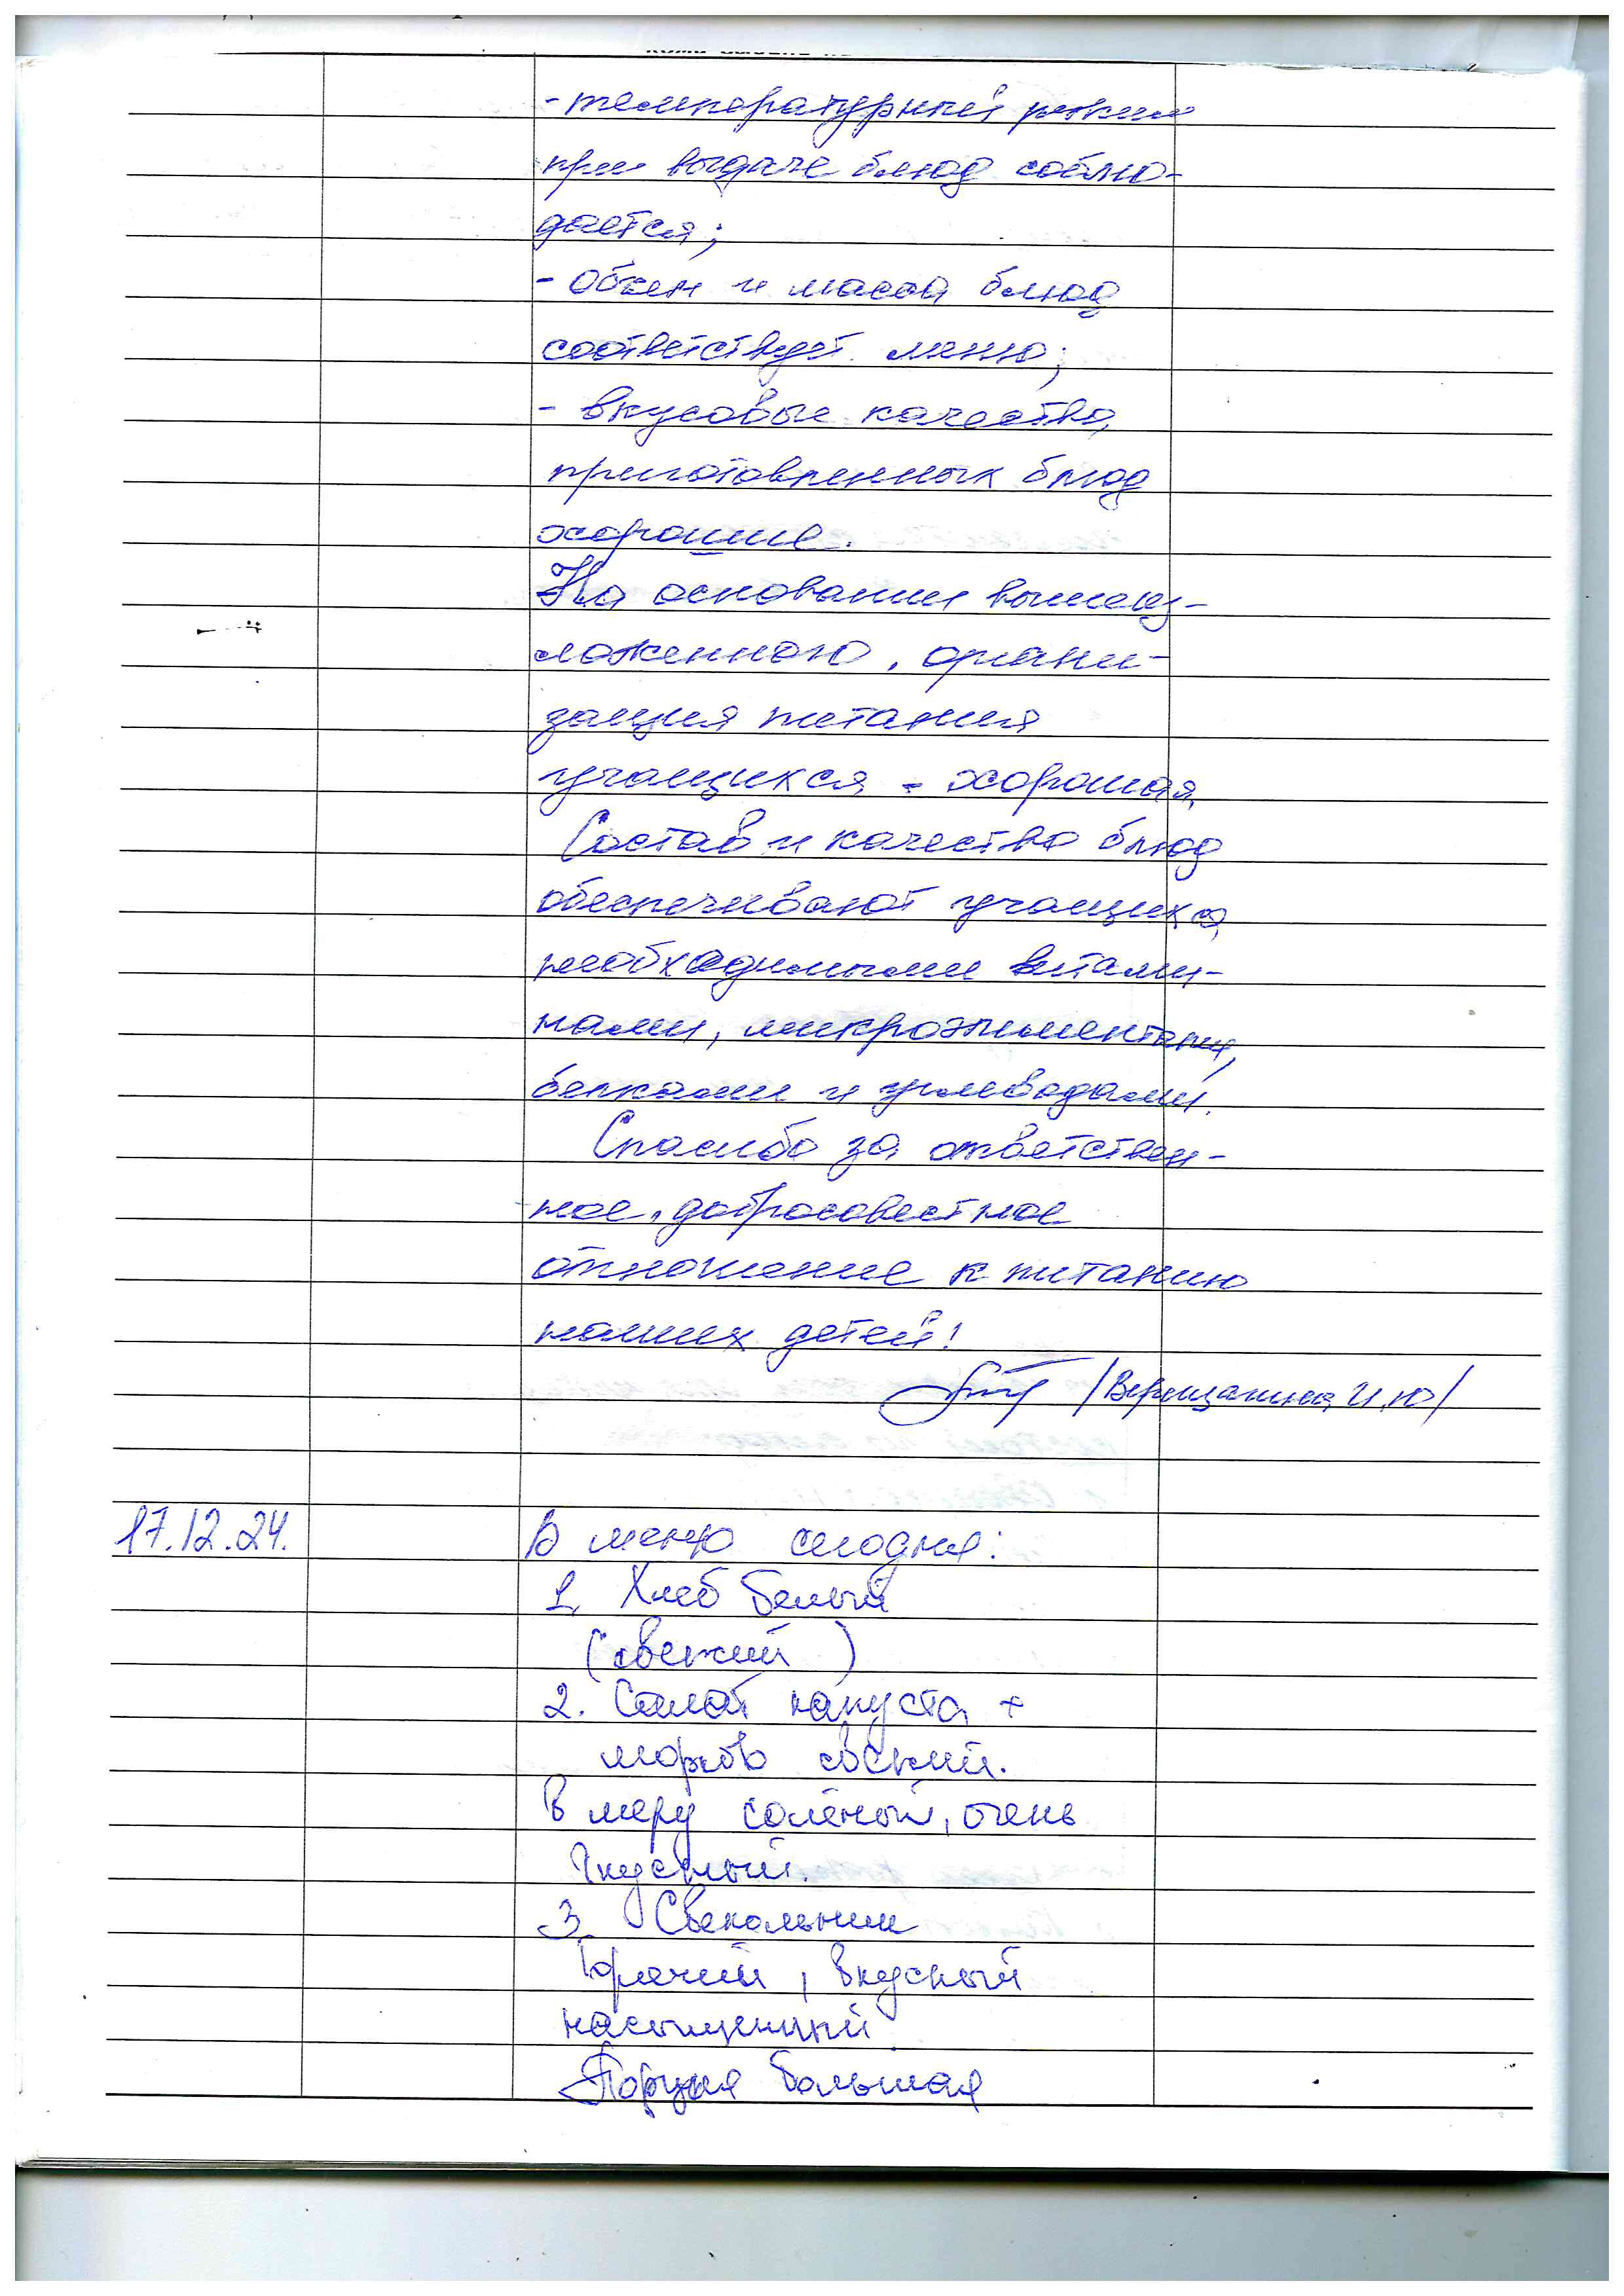 - температурный режим
при выдаче блюд соблю-
дается;
- объем и масса блюд
соответствует меню;
- вкусовые качества
приготовленных блюд
хорошие.
На основании вышеиз-
ложенного, органи-
зация питания
учащихся - хорошая.
Состав и качество блюд
обеспечивают учащихся
необходимыми витами-
нами, микроэлементами,
белками и углеводами.
Спасибо за ответствен-
ное, добросовестное
отношение к питанию
наших детей!
/Верещагина И.Ю/
17.12.24. В меню сегодня:
1. Хлеб белый
(свежий )
2. Салат капуста +
морковь свежий.
В меру солёный, очень
вкусный.
3. Свекольник
Горячий, вкусный
насыщенный
Порция большая